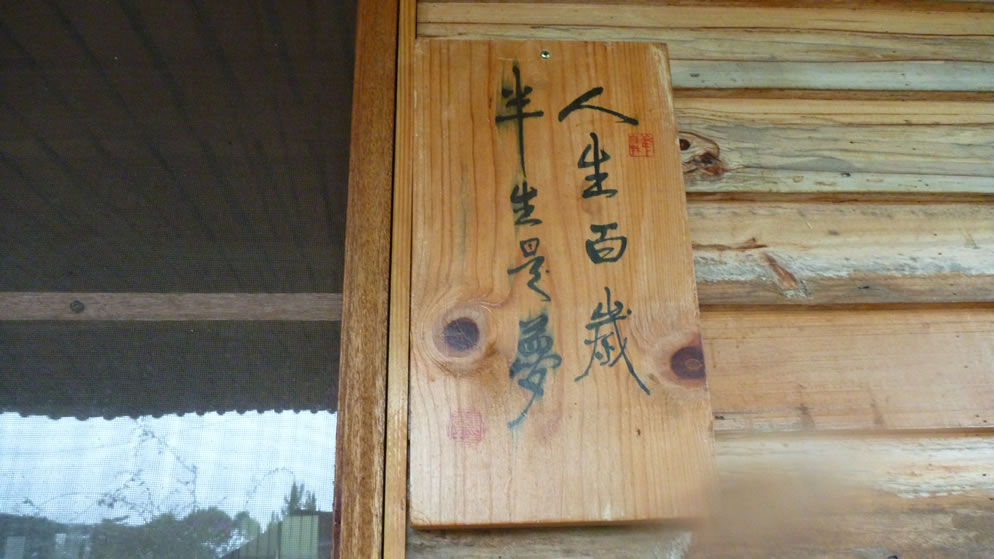 人生百歲
半生是夢